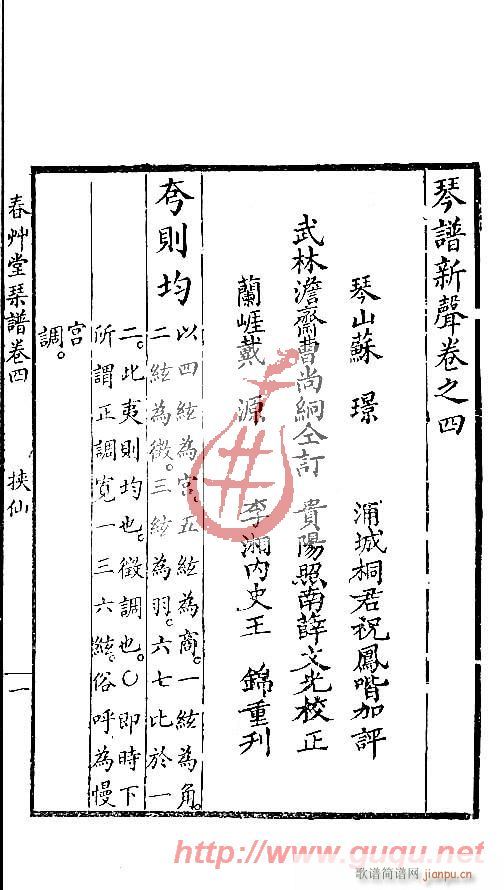 琴譜新聲卷之四
琴山蘇 璟 浦城桐君祝鳳喈加評
武林澹齋曹尚絅仝訂 貴陽照南薛文光校正
蘭崖戴 源 李湘內史王 錦重刋
夸則均
以四絃為宮。五絃為商。一絃為角。
二絃為徵。三絃為羽。六七比於一
二。此夷則均也。徵調也。○即時下
所謂正調寬一三六絃。俗呼為慢
宮
調。
春艸堂琴譜卷四 挾仙 一
http://www.guqu.net
歌谱简谱网
jianpu.cn